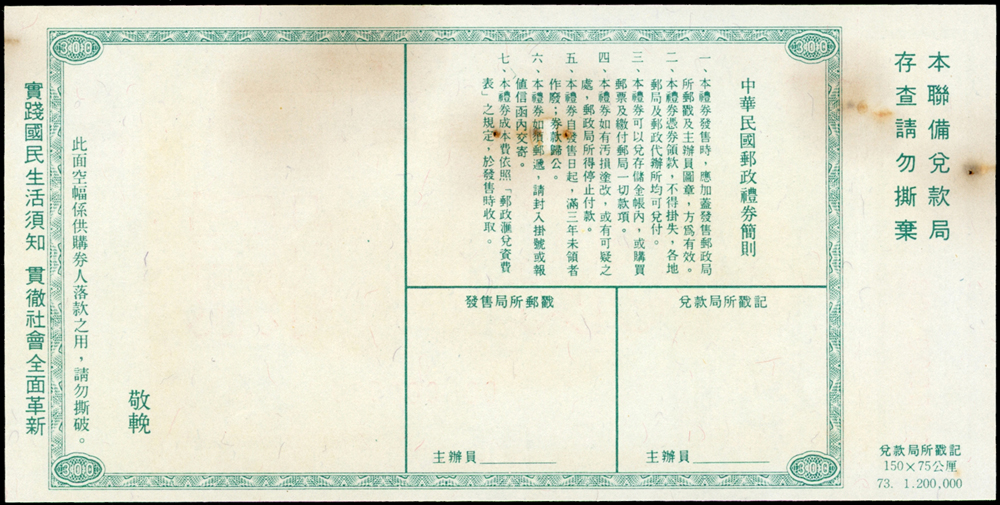 本聯備兌款局
存查請勿撕棄
兌款局所戳記
150×75公厘
73. 1.200,000
300
300
中華民國郵政禮券簡則
一、本禮券發售時，應加蓋發售郵政局
所郵戳及主辦員圖章，方為有效。
二、本禮券憑券領款，不得掛失，各地
郵局及郵政代辦所均可兌付。
三、本禮券可以兌存儲金帳內，或購買
郵票及繳付郵局一切款項。
四、本禮券如有汚損塗改，或有可疑之
處，郵政局所得停止付款。
五、本禮券自發售日起，滿三年未領者
作廢；券款歸公。
六、本禮券如須郵遞，請封入掛號或報
値信函內交寄。
七、本禮券成本費依照「郵政滙兌資費
表」之規定，於發售時收取。
兌款局所戳記
主辦員
發售局所郵戳
主辦員
敬輓
此面空幅係供購券人落款之用，請勿撕破。
300
300
實踐國民生活須知 貫徹社會全面革新